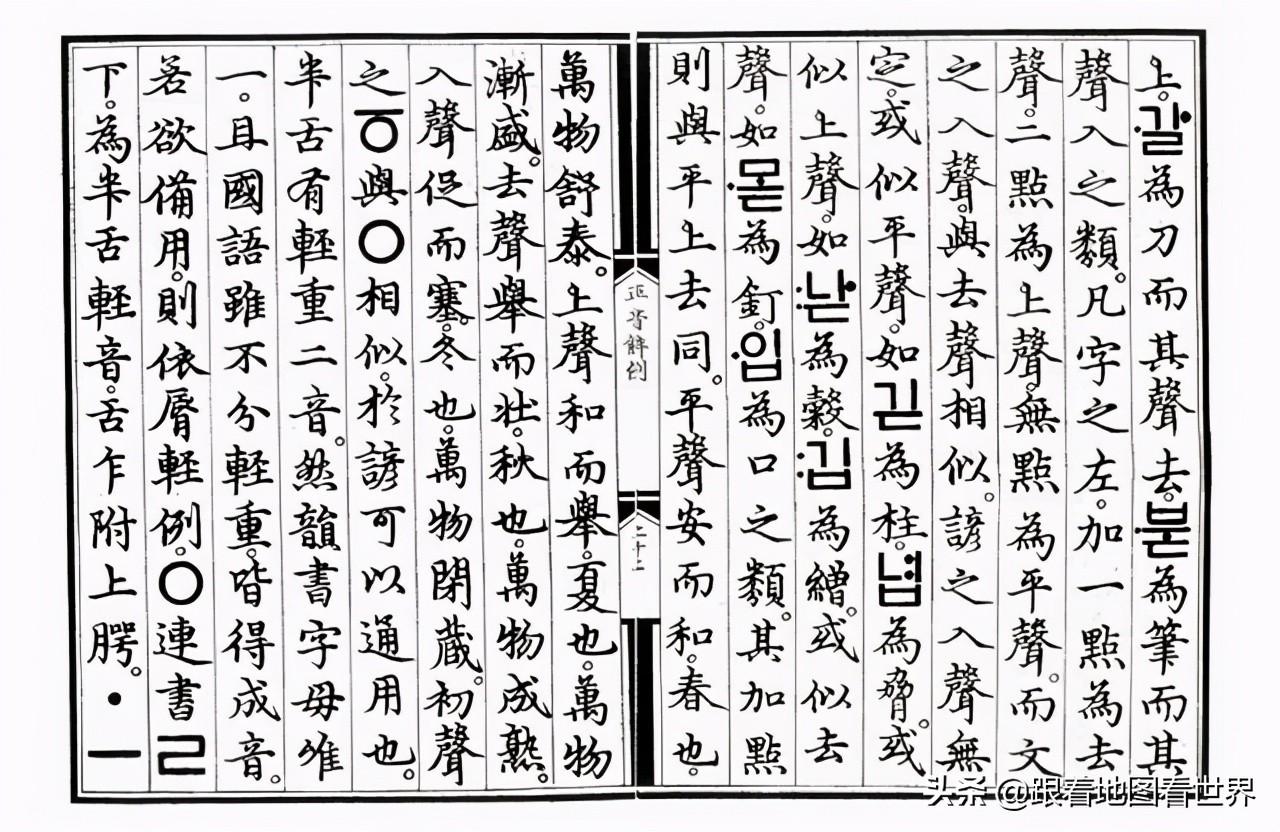 上。갈〮為刀而其聲去。붇〮為筆而其
聲入之類。凡字之左。加一點為去
聲。二點為上聲。無點為平聲。而文
之入聲。與去聲相似。諺之入聲無
定。或似平聲。如긷為柱。녑為脅。或
似上聲。如낟〯為穀。깁〯為繒。或似去
聲。如몯〮為釘。입〮為口之類。其加點
則與平上去同。平聲安而和。春也。
正音解例
二十二
萬物舒泰。上聲和而舉。夏也。萬物
漸盛。去聲舉而壯。秋也。萬物成熟。
入聲促而塞。冬也。萬物閉藏。初聲
之ㆆ與ㅇ相似。於諺可以通用也。
半舌有輕重二音。然韻書字母唯
一。且國語雖不分輕重。皆得成音。
若欲備用。則依脣輕例。ㅇ連書ㄹ
下。為半舌輕音。舌乍附上腭。ㆍㅡ
头条 @跟着地图看世界